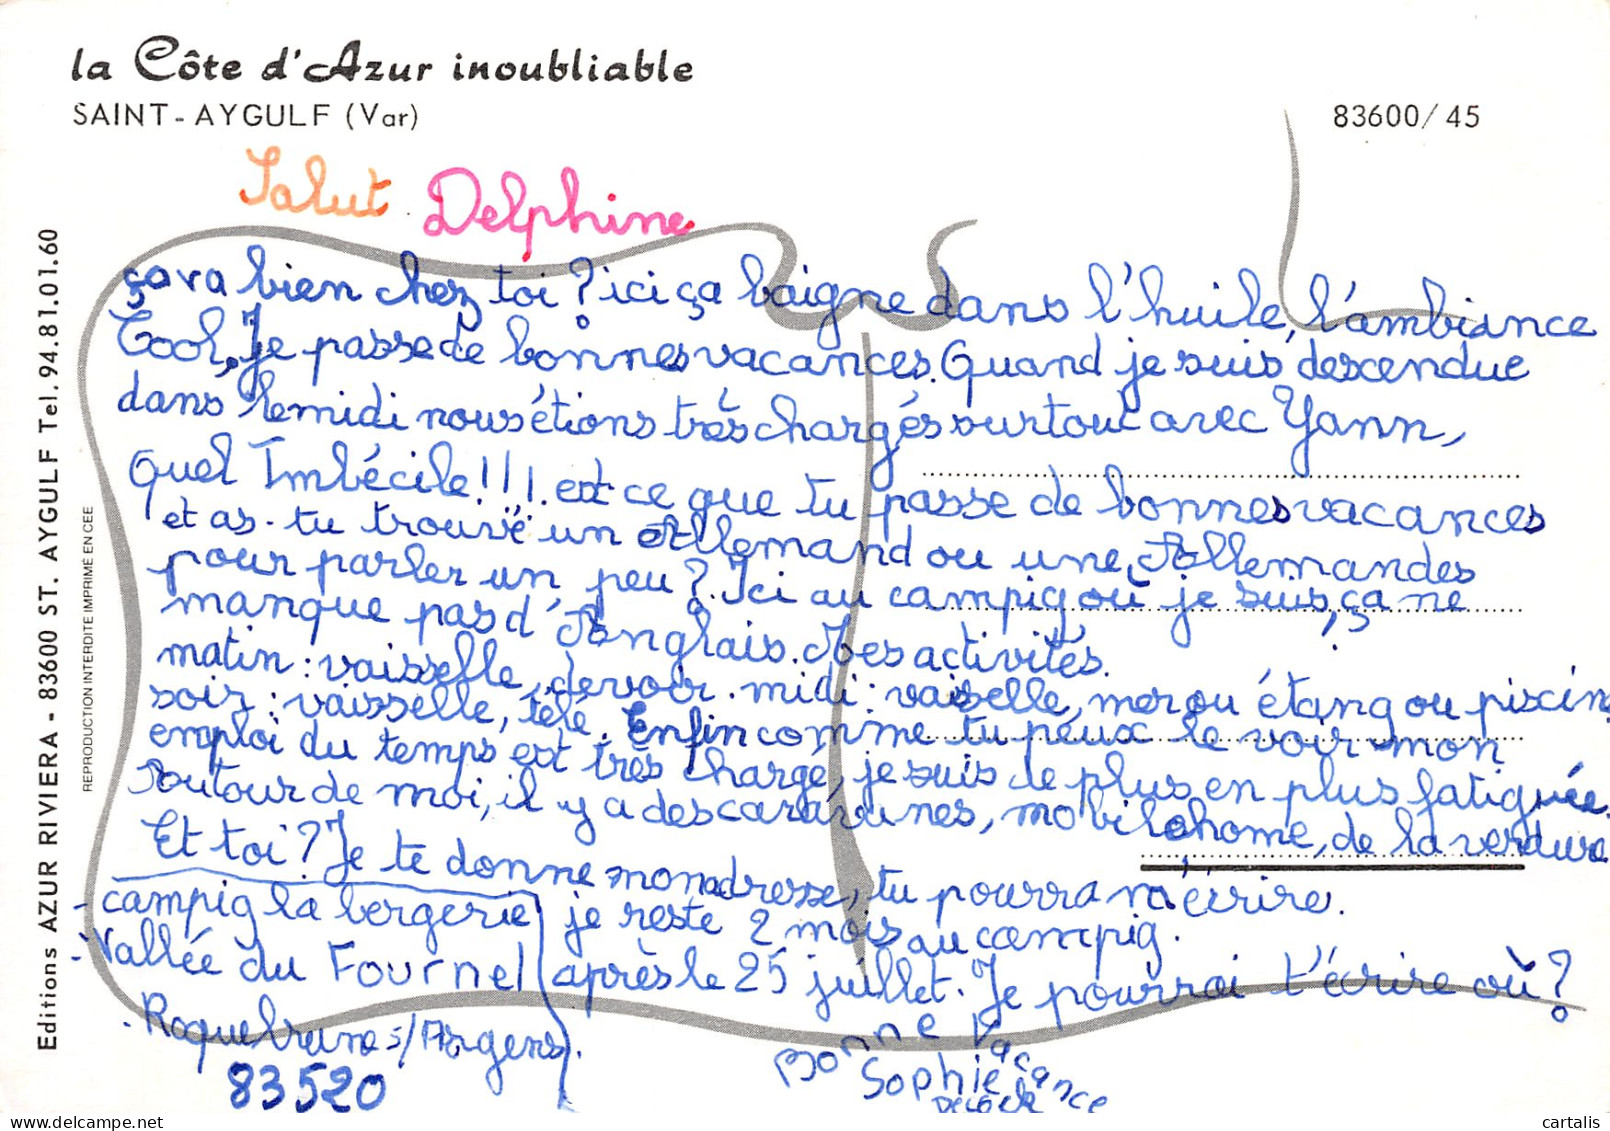 la Côte d'Azur inoubliable
SAINT-AYGULF (Var)
83600/45
Salut Delphine
ça va bien chez toi ? ici ça baigne dans l'huile, l'ambiance
Cool, Je passe de bonnes vacances. Quand je suis descendue
dans le midi nous étions très chargés surtout avec Yann,
Quel Imbécile!!! est ce que tu passe de bonnes vacances
et as-tu trouvé un Allemand ou une Allemandes
pour parler un peu ? Ici au campig où je suis, ça ne
manque pas d'Anglais. Mes activités.
matin : vaisselle, devoir. midi : vaisselle, mer ou étang ou piscin
soir : vaisselle, télé. Enfin comme tu peux le voir mon
emploi du temps est très chargé, je suis de plus en plus fatiguée.
Autour de moi, il y a des caravanes, mobilehome, de la verdure
Et toi ? Je te donne mon adresse, tu pourra m'écrire.
- campig la bergerie je reste 2 mois au campig.
- Vallée du Fournel après le 25 juillet. Je pourrai t'écrire où ?
- Roquebrune s/Argens.
83520
Bonne Vacance
Sophie
Editions AZUR RIVIERA - 83600 ST. AYGULF Tel. 94.81.01.60
REPRODUCTION INTERDITE IMPRIME EN CEE
cartalis
delcampe.net